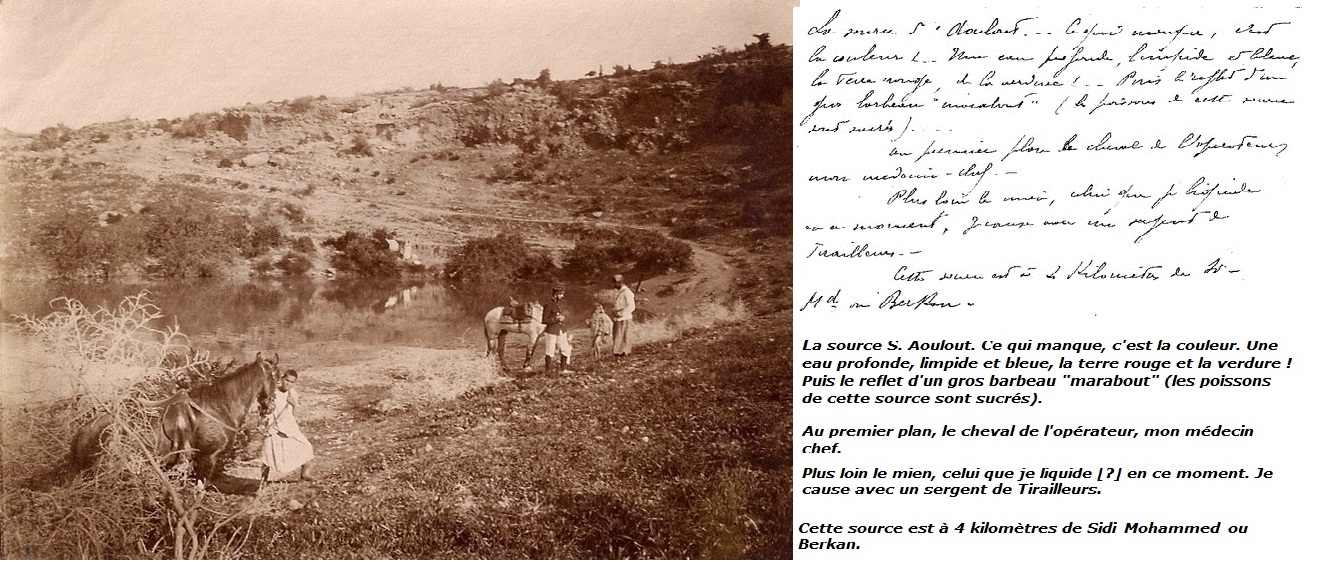 La source S. Aoulout... Ce qui manque, c'est
la couleur !... Une eau profonde, limpide et bleue,
la terre rouge, et la verdure !... Puis le reflet d'un
gros barbeau "marabout" (les poissons de cette source
sont sucrés)....
Au premier plan le cheval de l'opérateur,
mon médecin-chef.-
Plus loin le mien, celui que je
en ce moment, Je cause avec un sergent de
Tirailleurs.-
Cette source est à 4 Kilomètres de Si-
Md ou Berkan.
La source S. Aoulout. Ce qui manque, c'est la couleur. Une
eau profonde, limpide et bleue, la terre rouge et la verdure !
Puis le reflet d'un gros barbeau "marabout" (les poissons
de cette source sont sucrés).
Au premier plan, le cheval de l'opérateur, mon médecin
chef.
Plus loin le mien, celui que je liquide [?] en ce moment. Je
cause avec un sergent de Tirailleurs.
Cette source est à 4 kilomètres de Sidi Mohammed ou
Berkan.